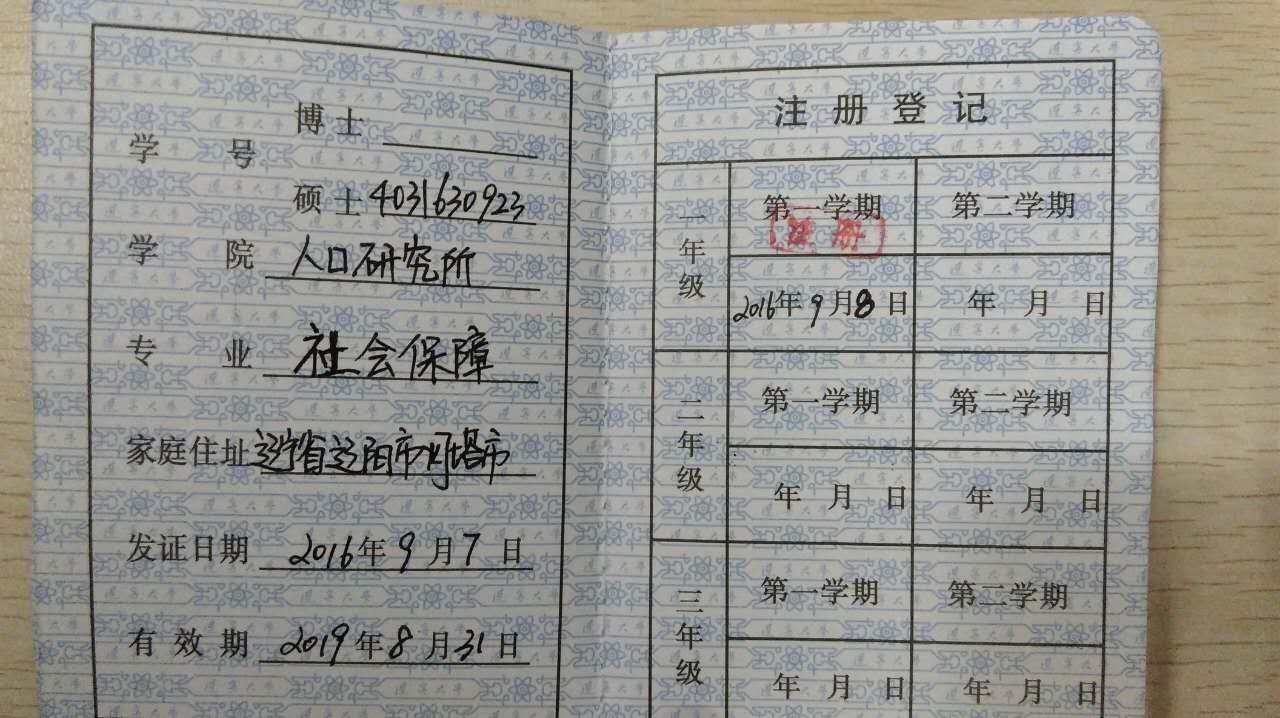 博士
学 号
硕士 4031630923
学 院 人口研究所
专 业 社会保障
家庭住址 辽宁省辽阳市灯塔市
发证日期 2016年9月7日
有效期 2019年8月31日
注册登记
一年级
第一学期 第二学期
注册
2016年9月8日 年 月 日
二年级
第一学期 第二学期
年 月 日 年 月 日
三年级
第一学期 第二学期
年 月 日 年 月 日
辽宁大学